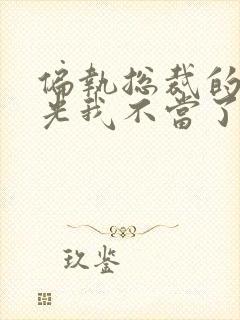 偏執总裁的
光我不當了
玖鉴